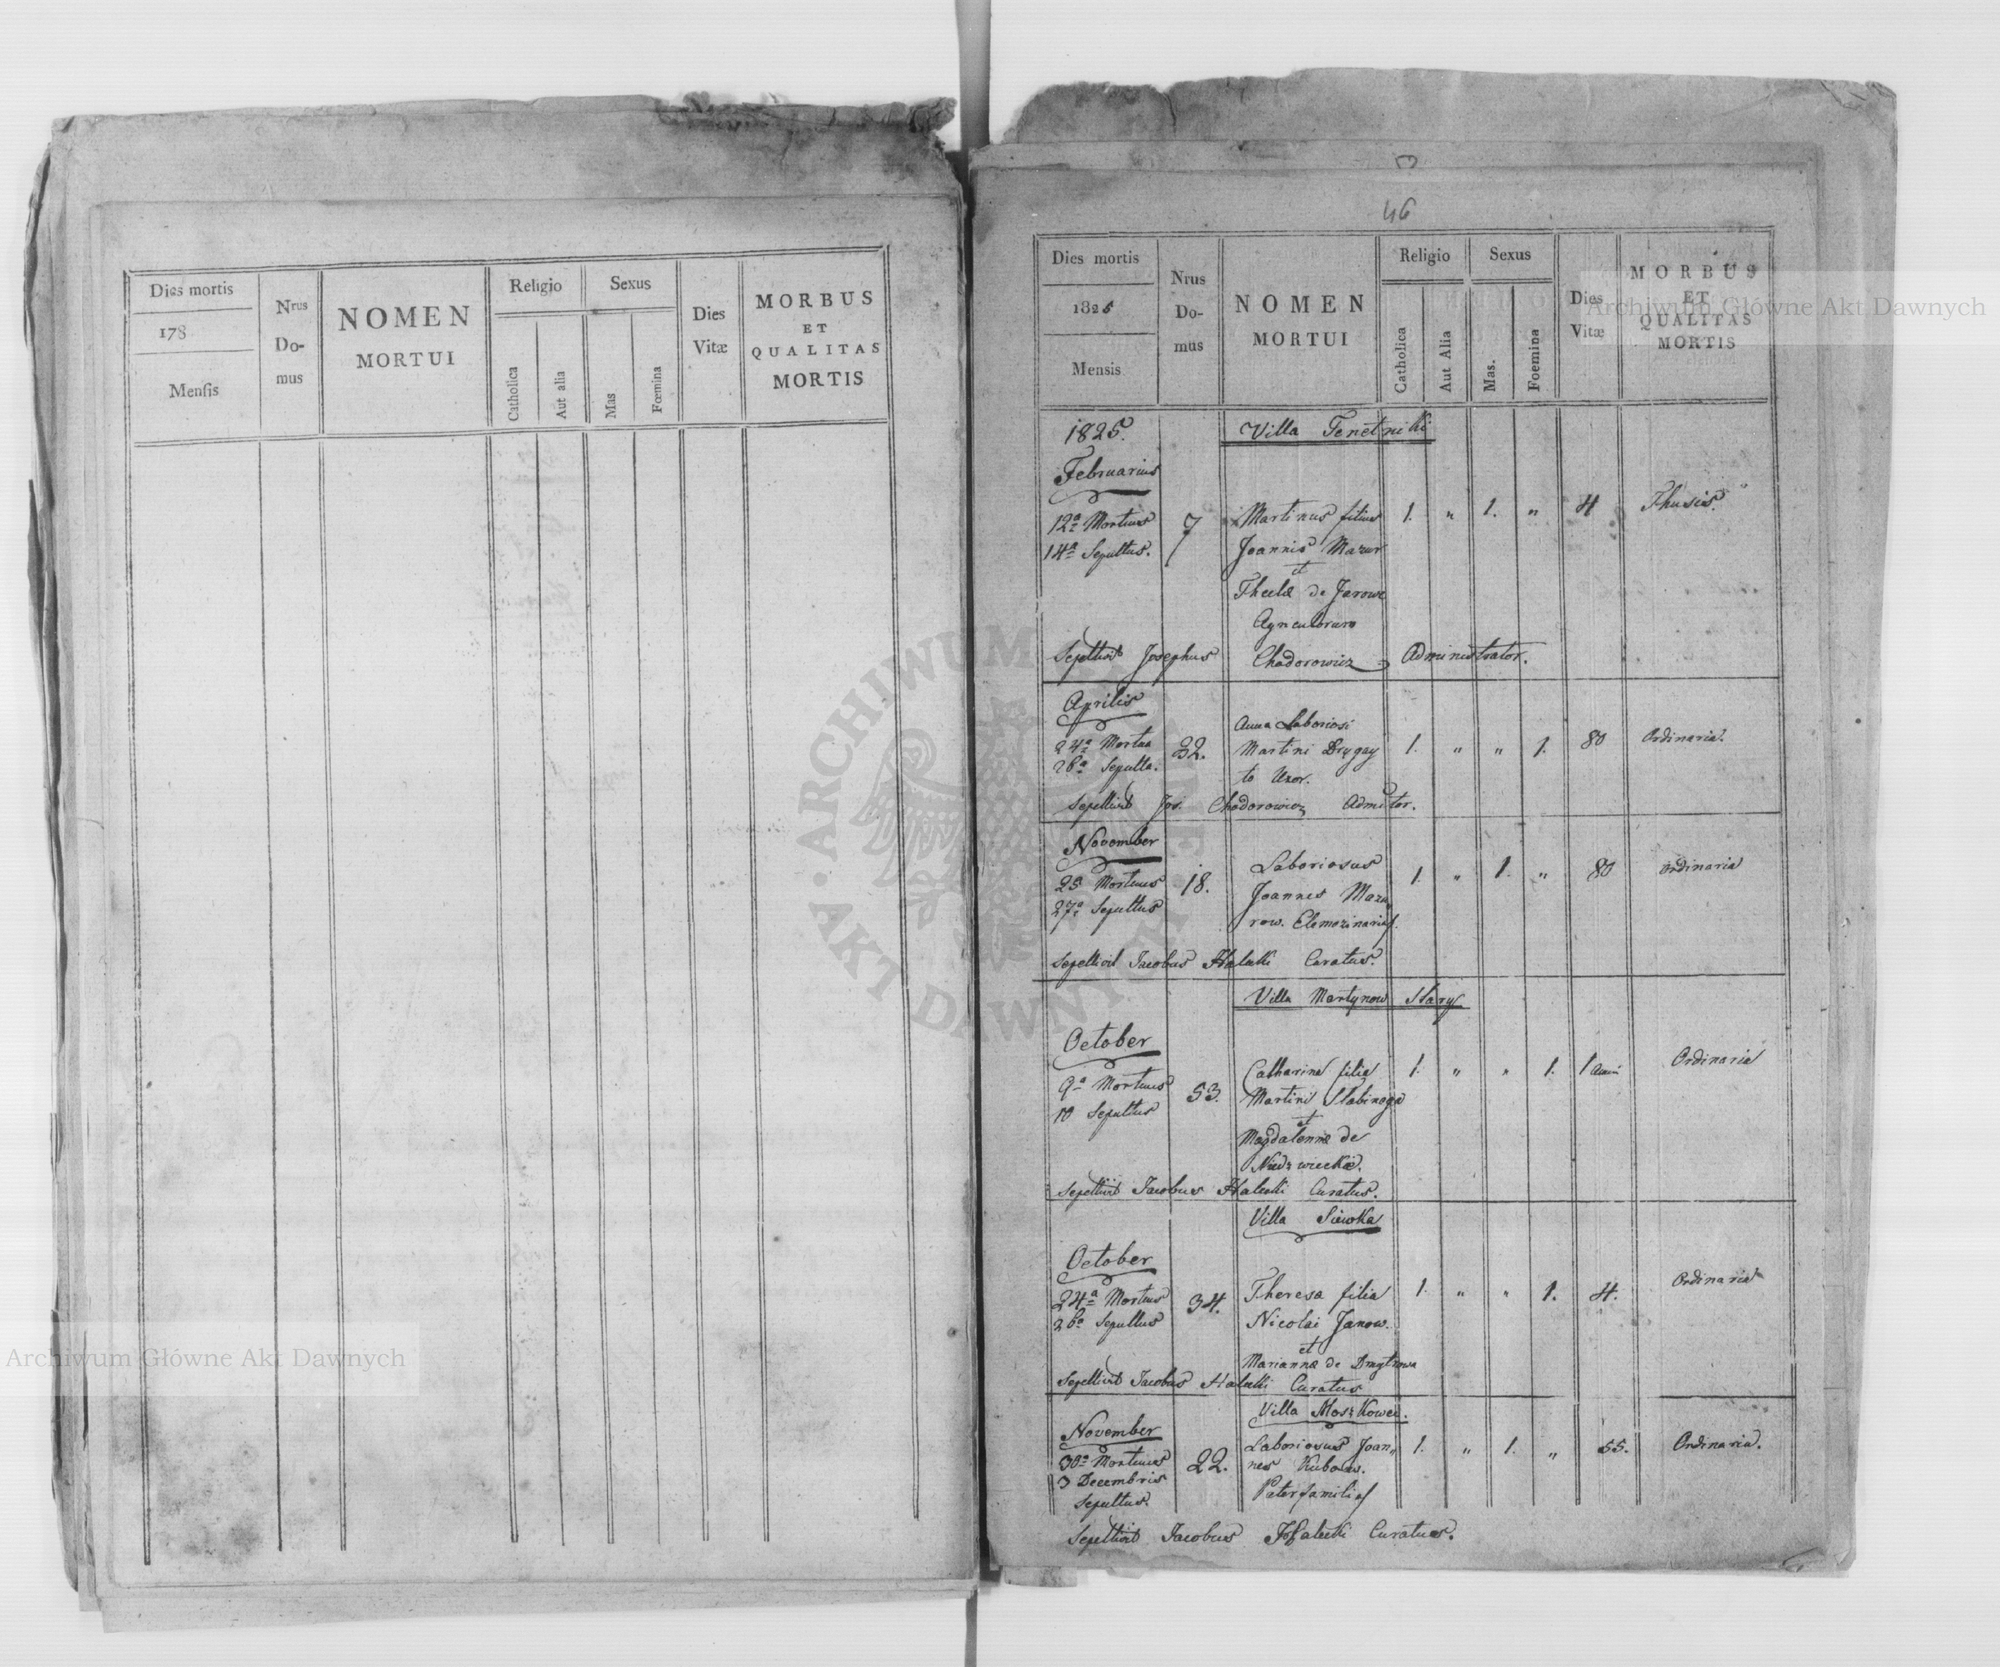 Dies mortis
178
Mensis
Nrus
Do-
mus
NOMEN
MORTUI
Religio
Catholica
Aut alia
Sexus
Mas
Fœmina
Dies
Vitæ
MORBUS
ET
QUALITAS
MORTIS
46
Dies mortis
1825
Mensis
Nrus
Do-
mus
NOMEN
MORTUI
Religio
Catholica
Aut Alia
Sexus
Mas.
Foemina
Dies
Vitæ
MORBUS
ET
QUALITAS
MORTIS
1825. Villa Tenetniki
Februarius
12a Mortuus 7 Martinus filius 1. " 1. " 4 Thusis.
14a Sepultus. Joannis Mazur
et
Theclæ de Jarowe
Agricolarum
Sepelivit Josephus Chodorowicz Administrator.
Aprilis
Anna Laboriosi
24a Mortua 32. Martini Drygay 1. " " 1. 80 Ordinaria.
26a Sepulta. to Uxor.
Sepelivit Jos. Chodorowicz Admitor.
November
Laboriosus
25 Mortuus 18. Joannes Mazu 1. " 1. " 80 ordinaria
27a Sepultus row. Elemozinarius.
Sepelivit Jacobus Curatus.
Villa Martynow Stary
October
9a Mortuus 53. Catharina filia 1. " " 1. 1 Anni Ordinaria
10 Sepultus Martini Slabinoga
et
Magdalennæ de
Niedzwieckie.
Sepelivit Jacobus Curatus.
Villa Siwka
October
24a Mortuus 34. Theresa filia 1. " " 1. 4. Ordinaria
26a Sepultus Nicolai Janow.
et
Mariannæ de Dmytrowa
Sepelivit Jacobus Curatus
Villa Moszkowce.
November
Laboriosus Joan
30a Mortuus 22. nes Kubow. 1. " 1. " 55. Ordinaria.
3 Decembris
Sepultus. Paterfamilias
Sepelivit Jacobus Curatus.
Archiwum Główne Akt Dawnych
Archiwum Główne Akt Dawnych